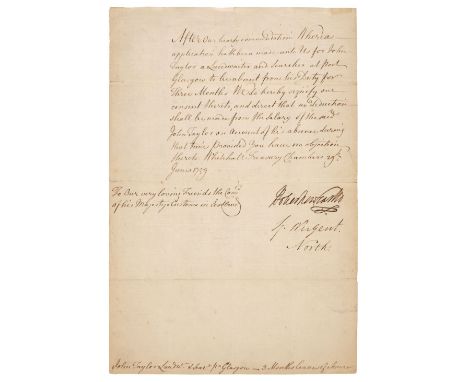 After our hearty commendations Whereas
application hath been made unto Us for John
Taylor a Landwaiter and Searcher at Port
Glasgow to be absent from his Duty for
Three Months We do hereby signify our
consent thereto, and direct that no Deduction
shall be made from the Salary of the said
John Taylor on Account of his absence during
that time provided you have no objection
thereto Whitehall Treasury Chambers 29th
June 1759
To Our very loving Friends the Comrs
of his Majestys Customs in Scotland
Nugent
North
John Taylor Landwr & Searr Pt Glasgow — 3 Months leave of Absence